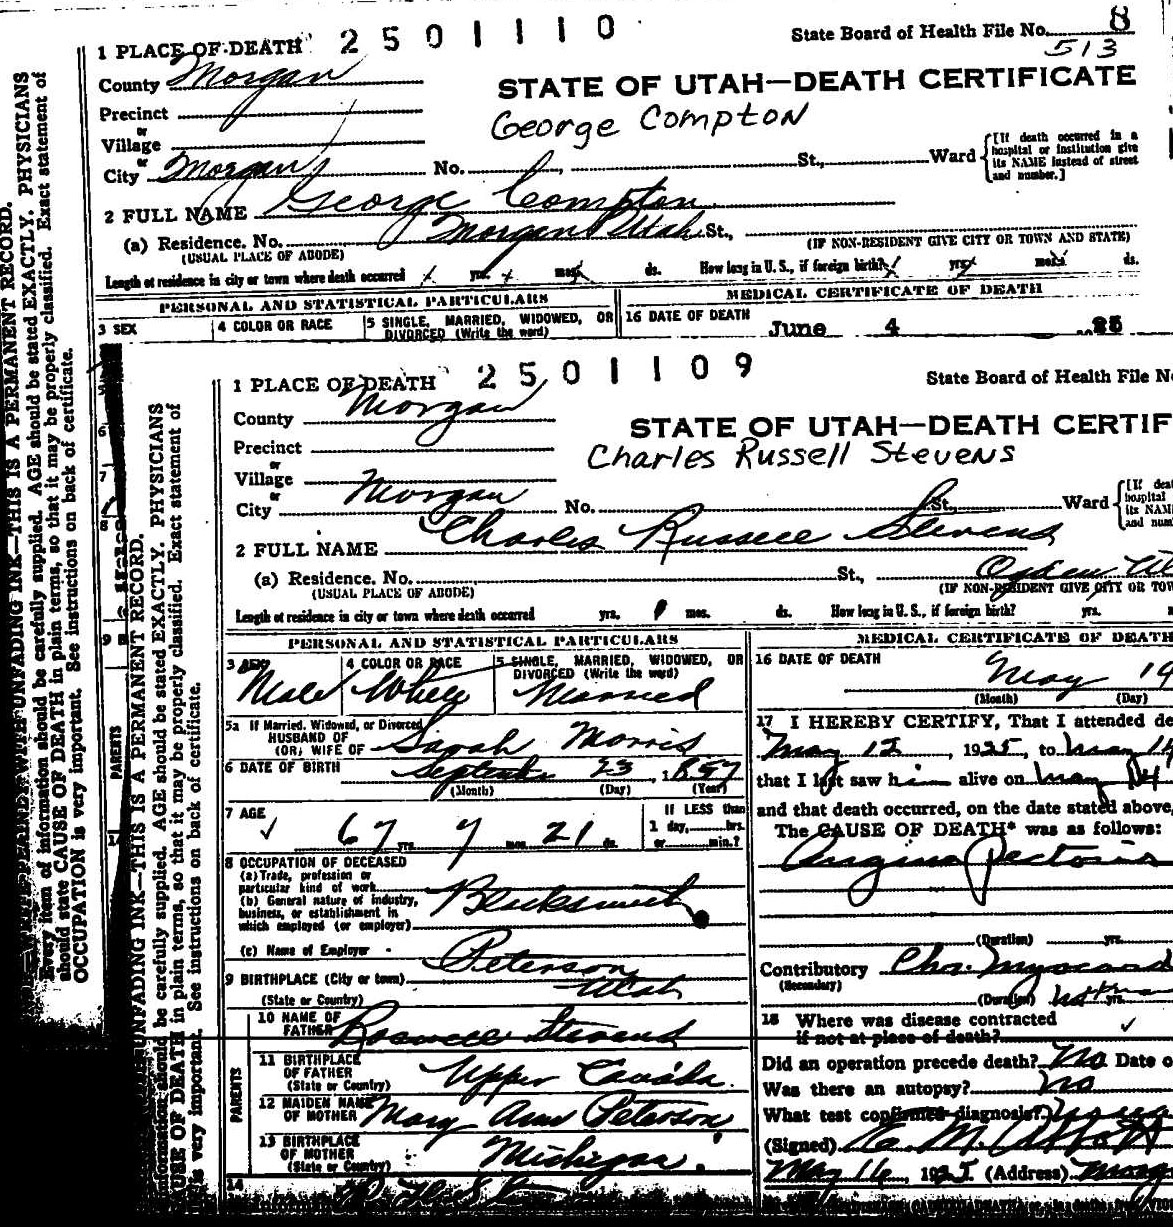 1 PLACE OF DEATH 2501110 State Board of Health File No. 8
513
County Morgan
STATE OF UTAH—DEATH CERTIFICATE
Precinct
George Compton
or
Village
or
City Morgan No. St., Ward
[If death occurred in a hospital or institution give its NAME instead of street and number.]
2 FULL NAME George Compton
(a) Residence. No. Morgan Utah St.,
(USUAL PLACE OF ABODE) (IF NON-RESIDENT GIVE CITY OR TOWN AND STATE)
Length of residence in city or town where death occurred yrs. mos. ds. How long in U. S., if foreign birth? yrs. mos. ds.
PERSONAL AND STATISTICAL PARTICULARS MEDICAL CERTIFICATE OF DEATH
3 SEX 4 COLOR OR RACE 5 SINGLE, MARRIED, WIDOWED, OR DIVORCED (Write the word) 16 DATE OF DEATH June 4 25
THIS IS A PERMANENT RECORD.
Every item of information should be carefully supplied. AGE should be stated EXACTLY. PHYSICIANS
should state CAUSE OF DEATH in plain terms, so that it may be properly classified. Exact statement of
OCCUPATION is very important. See instructions on back of certificate.
PARENTS
1 PLACE OF DEATH 2501109 State Board of Health File N
County Morgan
STATE OF UTAH—DEATH CERTIF
Precinct
Charles Russell Stevens
or
Village
or
City Morgan No. St., Ward
[If dea
hospital
its NAM
and num
2 FULL NAME Charles Russell Stevens
(a) Residence. No. St., Ogden
(USUAL PLACE OF ABODE) (IF NON-RESIDENT GIVE CITY OR TOW
Length of residence in city or town where death occurred yrs. mos. ds. How long in U. S., if foreign birth? yrs.
PERSONAL AND STATISTICAL PARTICULARS MEDICAL CERTIFICATE OF DEATH
3 SEX Male 4 COLOR OR RACE White 5 SINGLE, MARRIED, WIDOWED, OR DIVORCED (Write the word) Married
16 DATE OF DEATH May 14
(Month) (Day)
5a If Married, Widowed, or Divorced
HUSBAND OF
(OR) WIFE OF Sarah Morris
6 DATE OF BIRTH September 23, 1857
(Month) (Day) (Year)
7 AGE 67 yrs. 7 mos. 21 ds. If LESS than 1 day, hrs. or min.?
8 OCCUPATION OF DECEASED
(a) Trade, profession or
particular kind of work Blacksmith
(b) General nature of industry,
business, or establishment in
which employed (or employer)
(c) Name of Employer
9 BIRTHPLACE (City or town) Peterson
(State or Country) Utah
10 NAME OF FATHER Roswell Stevens
11 BIRTHPLACE OF FATHER (State or Country) Upper Canada.
12 MAIDEN NAME OF MOTHER Mary Ann Peterson
13 BIRTHPLACE OF MOTHER (State or Country) Michigan.
14
PARENTS
17 I HEREBY CERTIFY, That I attended de
May 12, 1925, to May 14
that I last saw him alive on May 14
and that death occurred, on the date stated above,
The CAUSE OF DEATH* was as follows:
Angina Pectoris
(Duration) yrs.
Contributory Chr. Myocard
(Secondary)
(Duration) yrs.
18 Where was disease contracted
if not at place of death?
Did an operation precede death? No Date o
Was there an autopsy? No
What test confirmed diagnosis?
(Signed)
May 16, 1925. (Address) Morg
UNFADING INK—THIS IS A PERMANENT RECORD.
information should be carefully supplied. AGE should be stated EXACTLY. PHYSICIANS
CAUSE OF DEATH in plain terms, so that it may be properly classified. Exact statement of
is very important. See instructions on back of certificate.